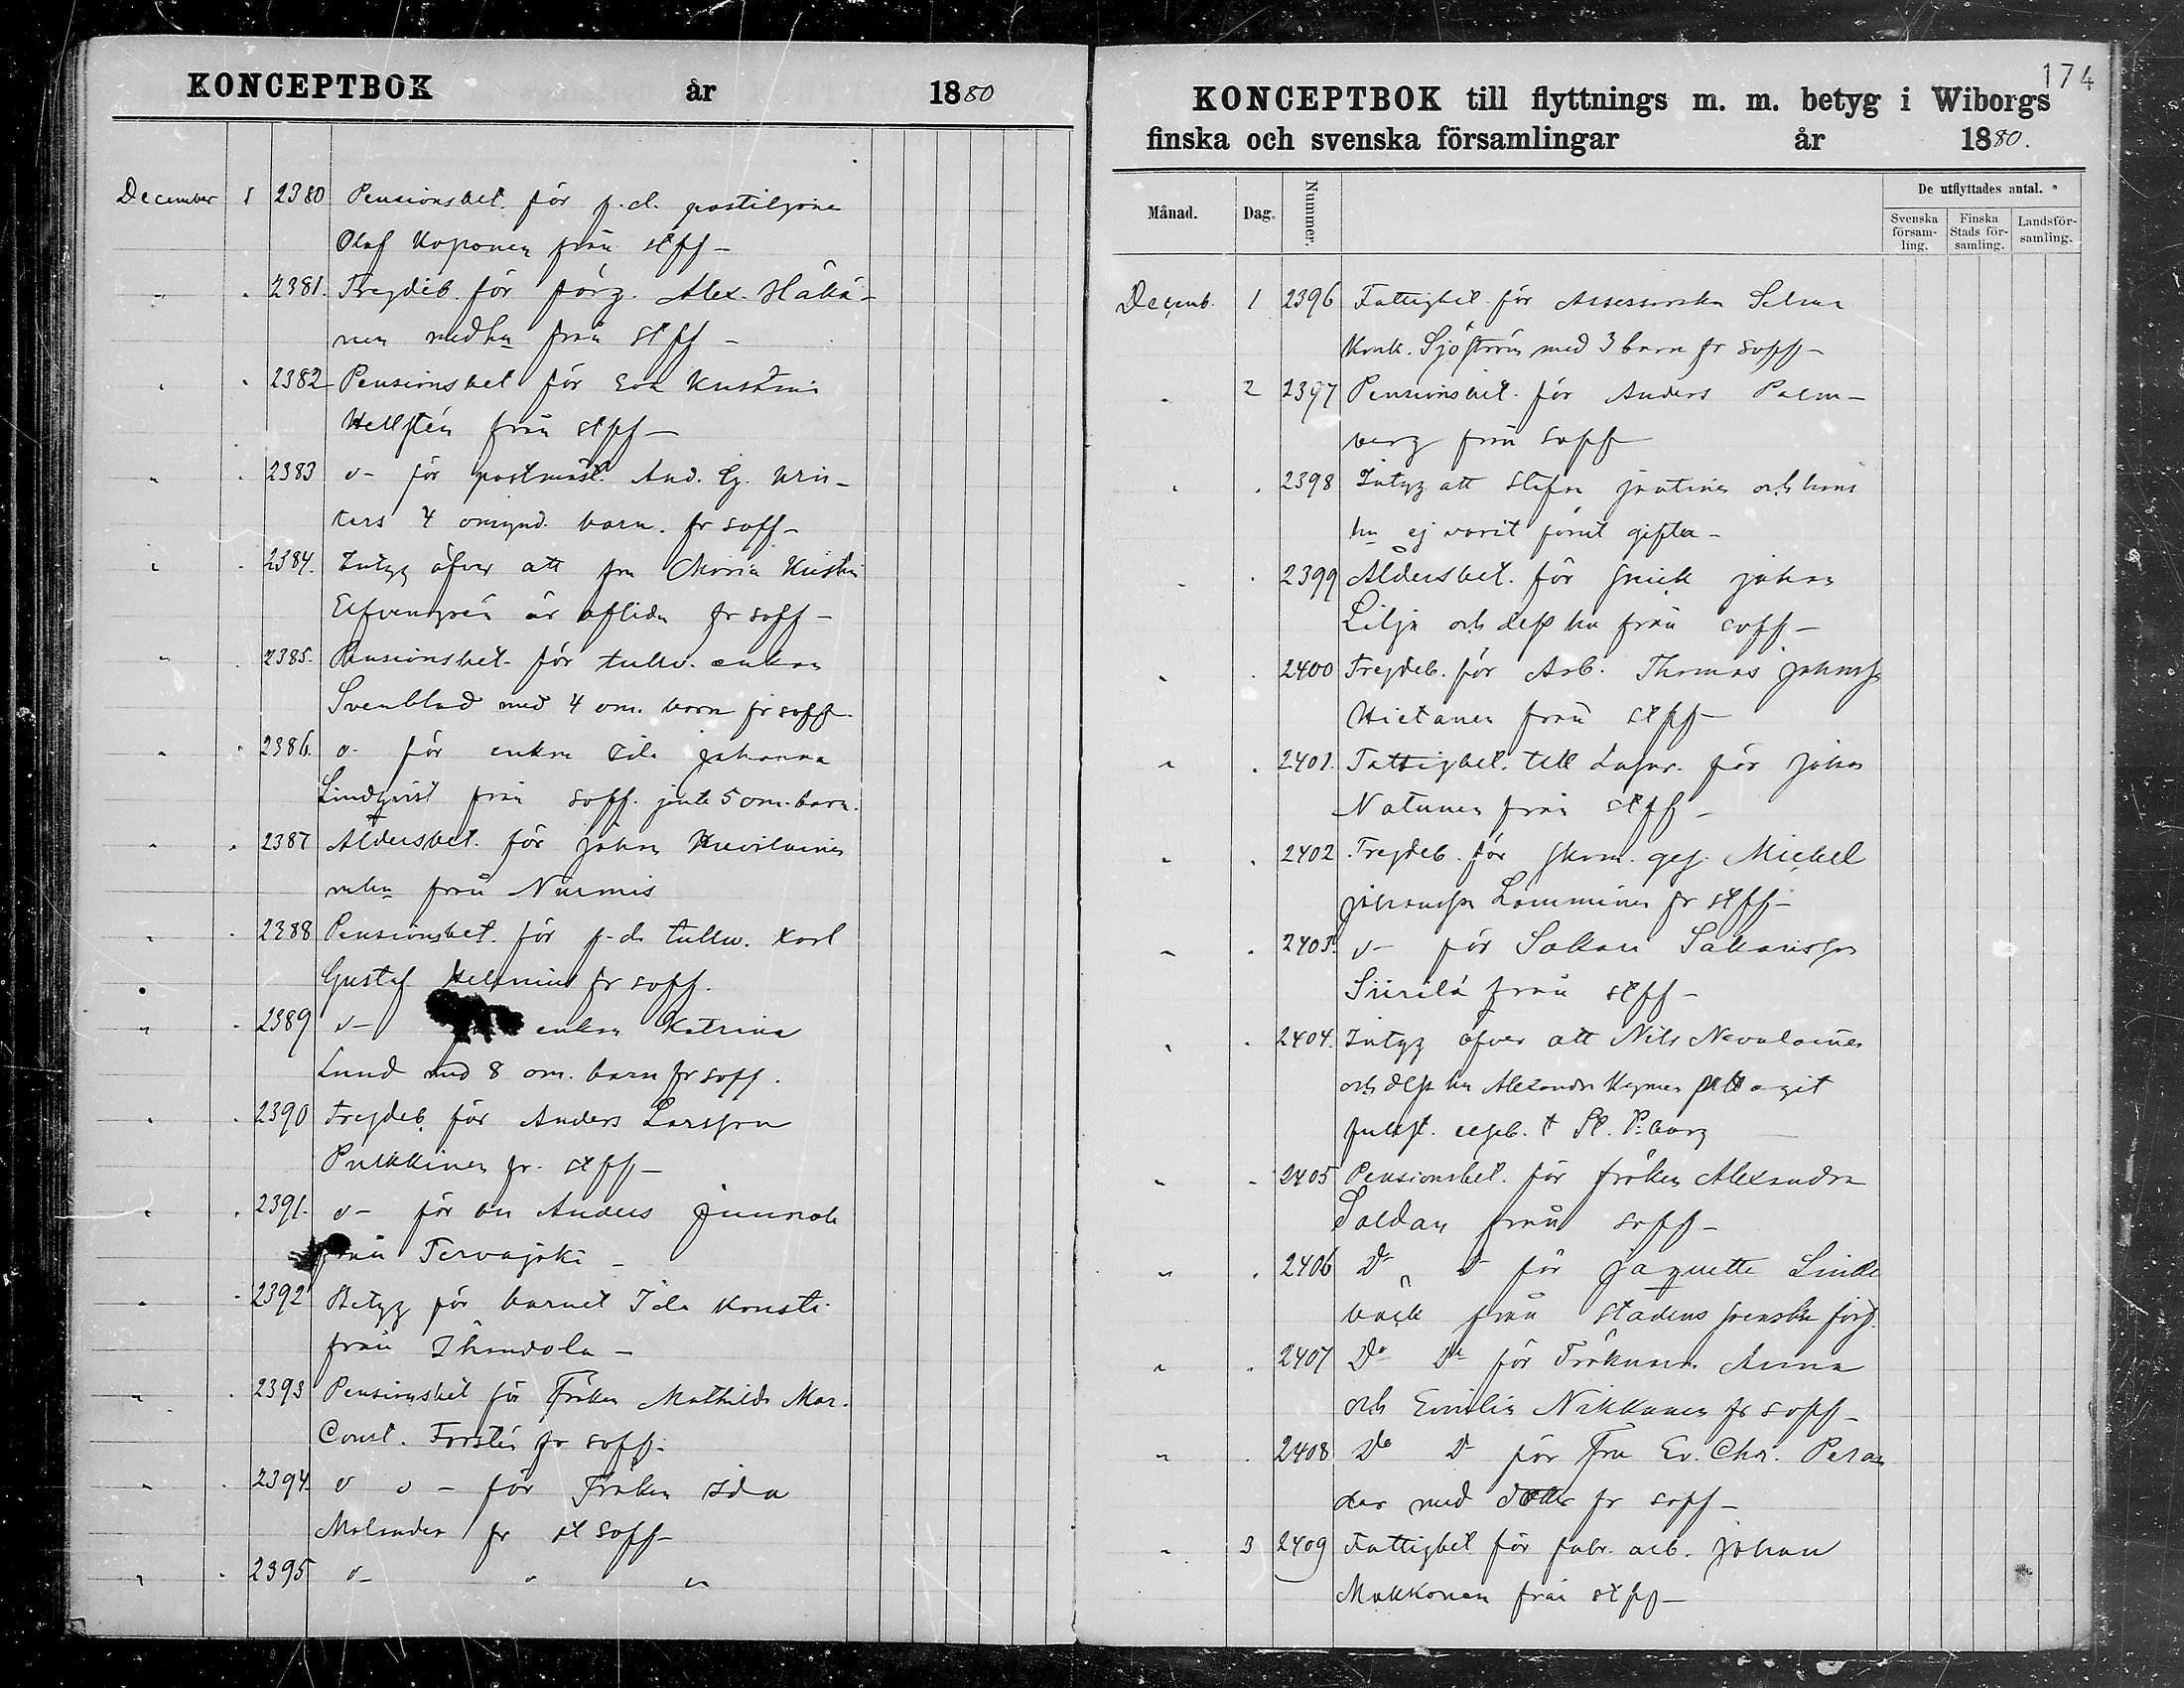 KONCEPTBOK år 1880
December 1 2380 Pensionsbet. för f.d. postiljonen
Olof Koponen från stff –
" . 2381. Frejdeb. för förg. Alex. Häkä-
nen medhu från stff –
" . 2382 Pensionsbet för Eva Kristina
Hellstén från stff –
" . 2383 d– för postmäst. And. G.
4 omynd. barn. fr soff –
" . 2384. Intyg öfver att fru Maria Kristin
Elfvengrén är afliden fr soff –
" . 2385. Pensionsbet. för tullv. enkan
Svenblad med 4 om. barn fr soff.
" . 2386. d– för enkan Ida Johanna
Lindqvist från soff. jemte 5 om. barn.
" . 2387 Åldersbet. för Johan
från Nurmis
" . 2388 Pensionsbet. för f.d. tullv. Karl
Gustaf fr soff.
" . 2389 d– enkan Katrina
Lund med 8 om. barn fr soff.
" . 2390 Frejdeb. för Anders Larsson
Pukkinen fr. stff –
" . 2391. d– för Anders
från Tervajoki –
" . 2392 Betyg för barnet Ida
från Ihandola –
" . 2393 Pensionsbet för Fröken Mathilda Mar.
Const. Forstén fr soff.
" . 2394. d d – för Fröken Ida
Molander fr st soff –
" . 2395 d– " "
174
KONCEPTBOK till flyttnings m. m. betyg i Wiborgs
finska och svenska församlingar år 1880.
Månad. Dag. Nummer. De utflyttades antal.
Svenska församling. Finska Stads församling. Landsförsamling.
Decemb. 1 2396 Fattigbet. för Assessorskan Selma
Sjöström med 3 barn fr soff –
" 2 2397 Pensionsbet. för Anders Palm-
berg från soff
" . 2398 Intyg att Stefan och hans
hu ej varit förut gifta –
" . 2399 Åldersbet. för Johan
Lilja och dess hu från soff –
" . 2400 Frejdeb. för Arb. Thomas Johanss
Hietanen från stff –
" . 2401. Fattigbet. till för Johan
Natunen från stff –
" . 2402. Frejdeb. för skom. ges. Mickel
Johansson Lamminen fr stff –
" . 2403. d– för Sakari Sakarisson
Siirilä från stff –
" . 2404. Intyg öfver att Nils Nevalainen
och dess hu Alexandra
t St. P:burg
" . 2405 Pensionsbet. för fröken Alexandra
Soldan från soff –
" . 2406 Do do för Jaquette Linde
bäck från stadens svenska förs.
" . 2407 Do do för Fröknarna Anna
och Emilia Nikkanen fr soff –
" . 2408 Do D för Fru Ev. Chr. Peran
der med dotter fr soff –
" 3 2409 Fattigbet för fabr. arb. Johan
Makkonen från stff –